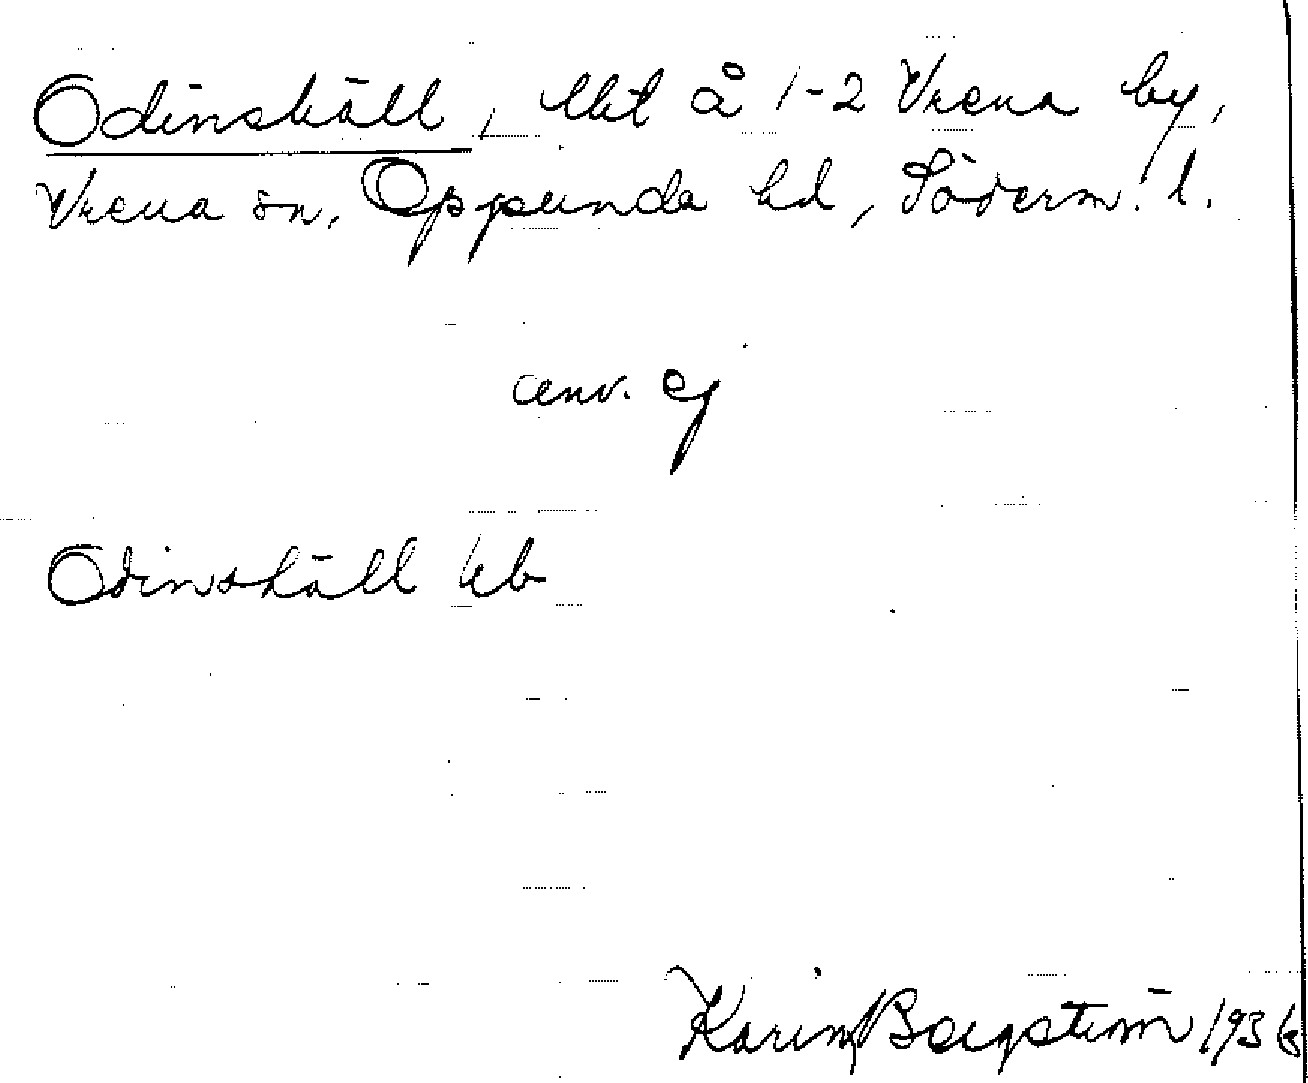 Odinskäll, lht å 1-2 Vrena by,
Vrena sn, Oppunda hd, Söderm. l.
anv. ej
Odinskäll
Karin Bergström 1936